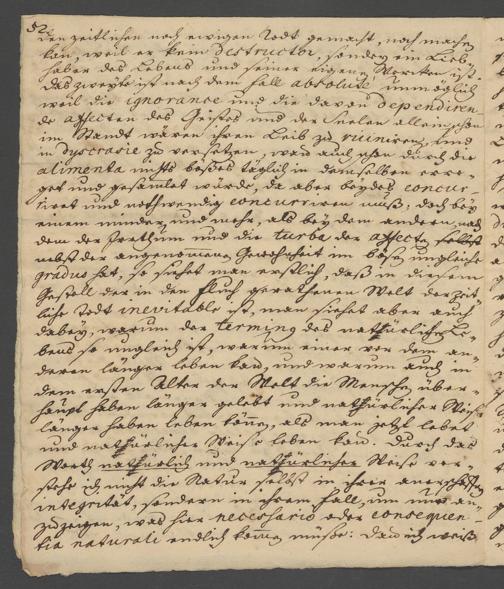 52.
den zeitlichen noch ewigen Todt gemacht, noch machen
kan, weil er kein Destructor, sondern ein Lieb-
haber des Lebens und seiner eigenen Wercken ist.
Das zweyte ist nach dem Fall absolute unmöglich
weil die ignorance und die davon dependiren-
de affecten des Geistes und der Seelen allein schon
im Standt wären ihren Leib zu ruiniren, und
in Dyscrasie zu versetzen, wan auch schon durch die
alimenta nichts böses täglich in demselben erre-
get und gesamlet würde, da aber beydes concur-
riret und nothwendig concurriren muß; doch bey
einem minder und mehr, als bey dem andern, nach
dem der Irrthum und die turba der affecten selbst
nebst der angenomenen Gewohnheit im bösen ungleiche
gradus hat, so siehet man erstlich, daß in diesem
Gestell der in den Fluch gerathenen Welt der zeit-
liche Todt inevitable ist, man siehet aber auch
dabey, warum der terminus des natürlichen Le-
bens so ungleich ist, warum einer vor dem an-
deren länger leben kan, und warum auch in
dem ersten Alter der Welt die Menschen über-
haupt haben länger gelebt und nathürlicher Weise
länger haben leben könen, als man jetzt lebet
und nathürlicher Weise leben kan. Durch das
Worth nathürlich und nathürlicher Weise ver-
stehe ich nicht die Natur selbst in ihrer anerschaffenen
integrität, sondern in ihrem Fall, um nur an-
zuzeigen, was hier necessario oder consequen-
tia naturali endlich komen müße: Dan ich weiß